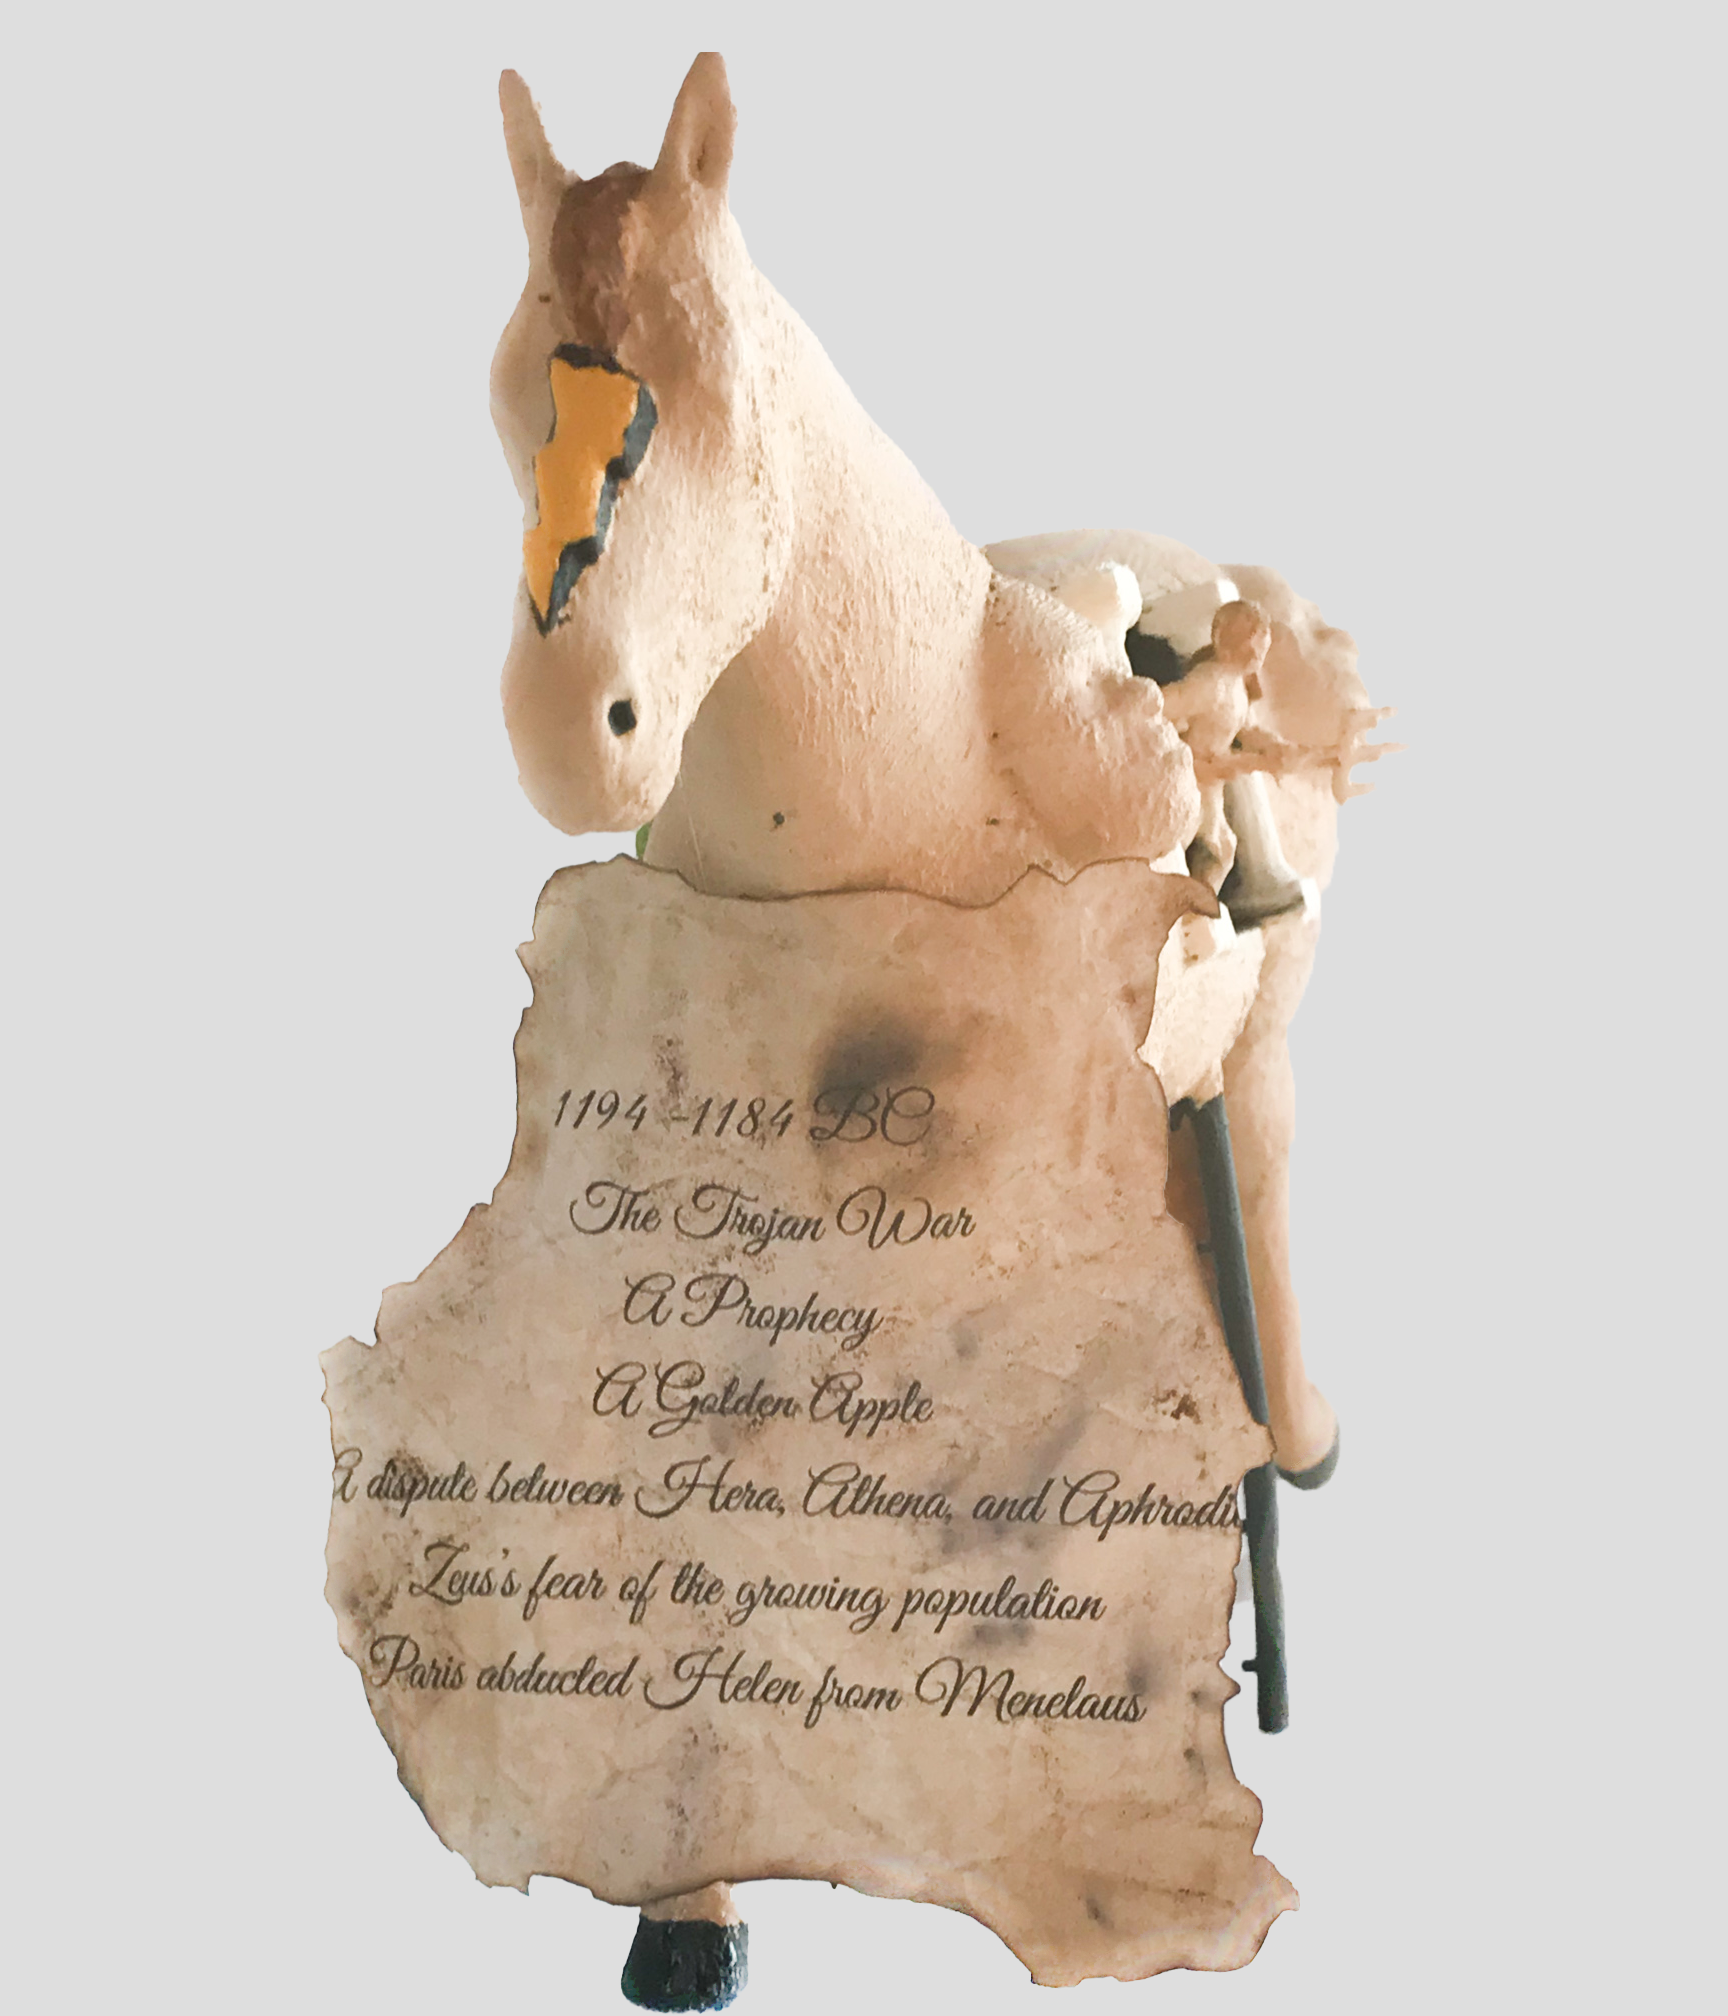 1194 -1184 BC
The Trojan War
A Prophecy
A Golden Apple
A dispute between Hera, Athena, and
Zeus's fear of the growing population
Paris abducted Helen from Menelaus